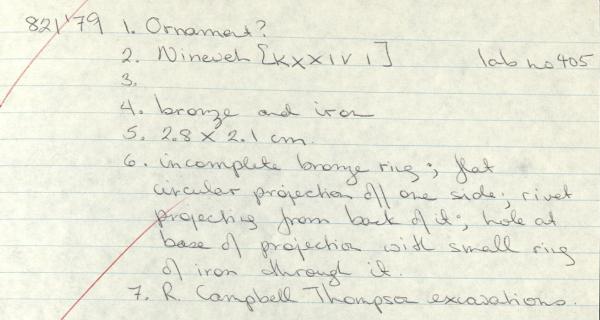 821/'79 1. Ornament?
2. Nineveh [KXXIV 1] lab no 405
3.
4. bronze and iron
5. 2.8 x 2.1 cm.
6. incomplete bronze ring; flat
circular projection off one side; rivet
projecting from back of it; hole at
base of projection with small ring
of iron through it.
7. R. Campbell Thompson excavations.